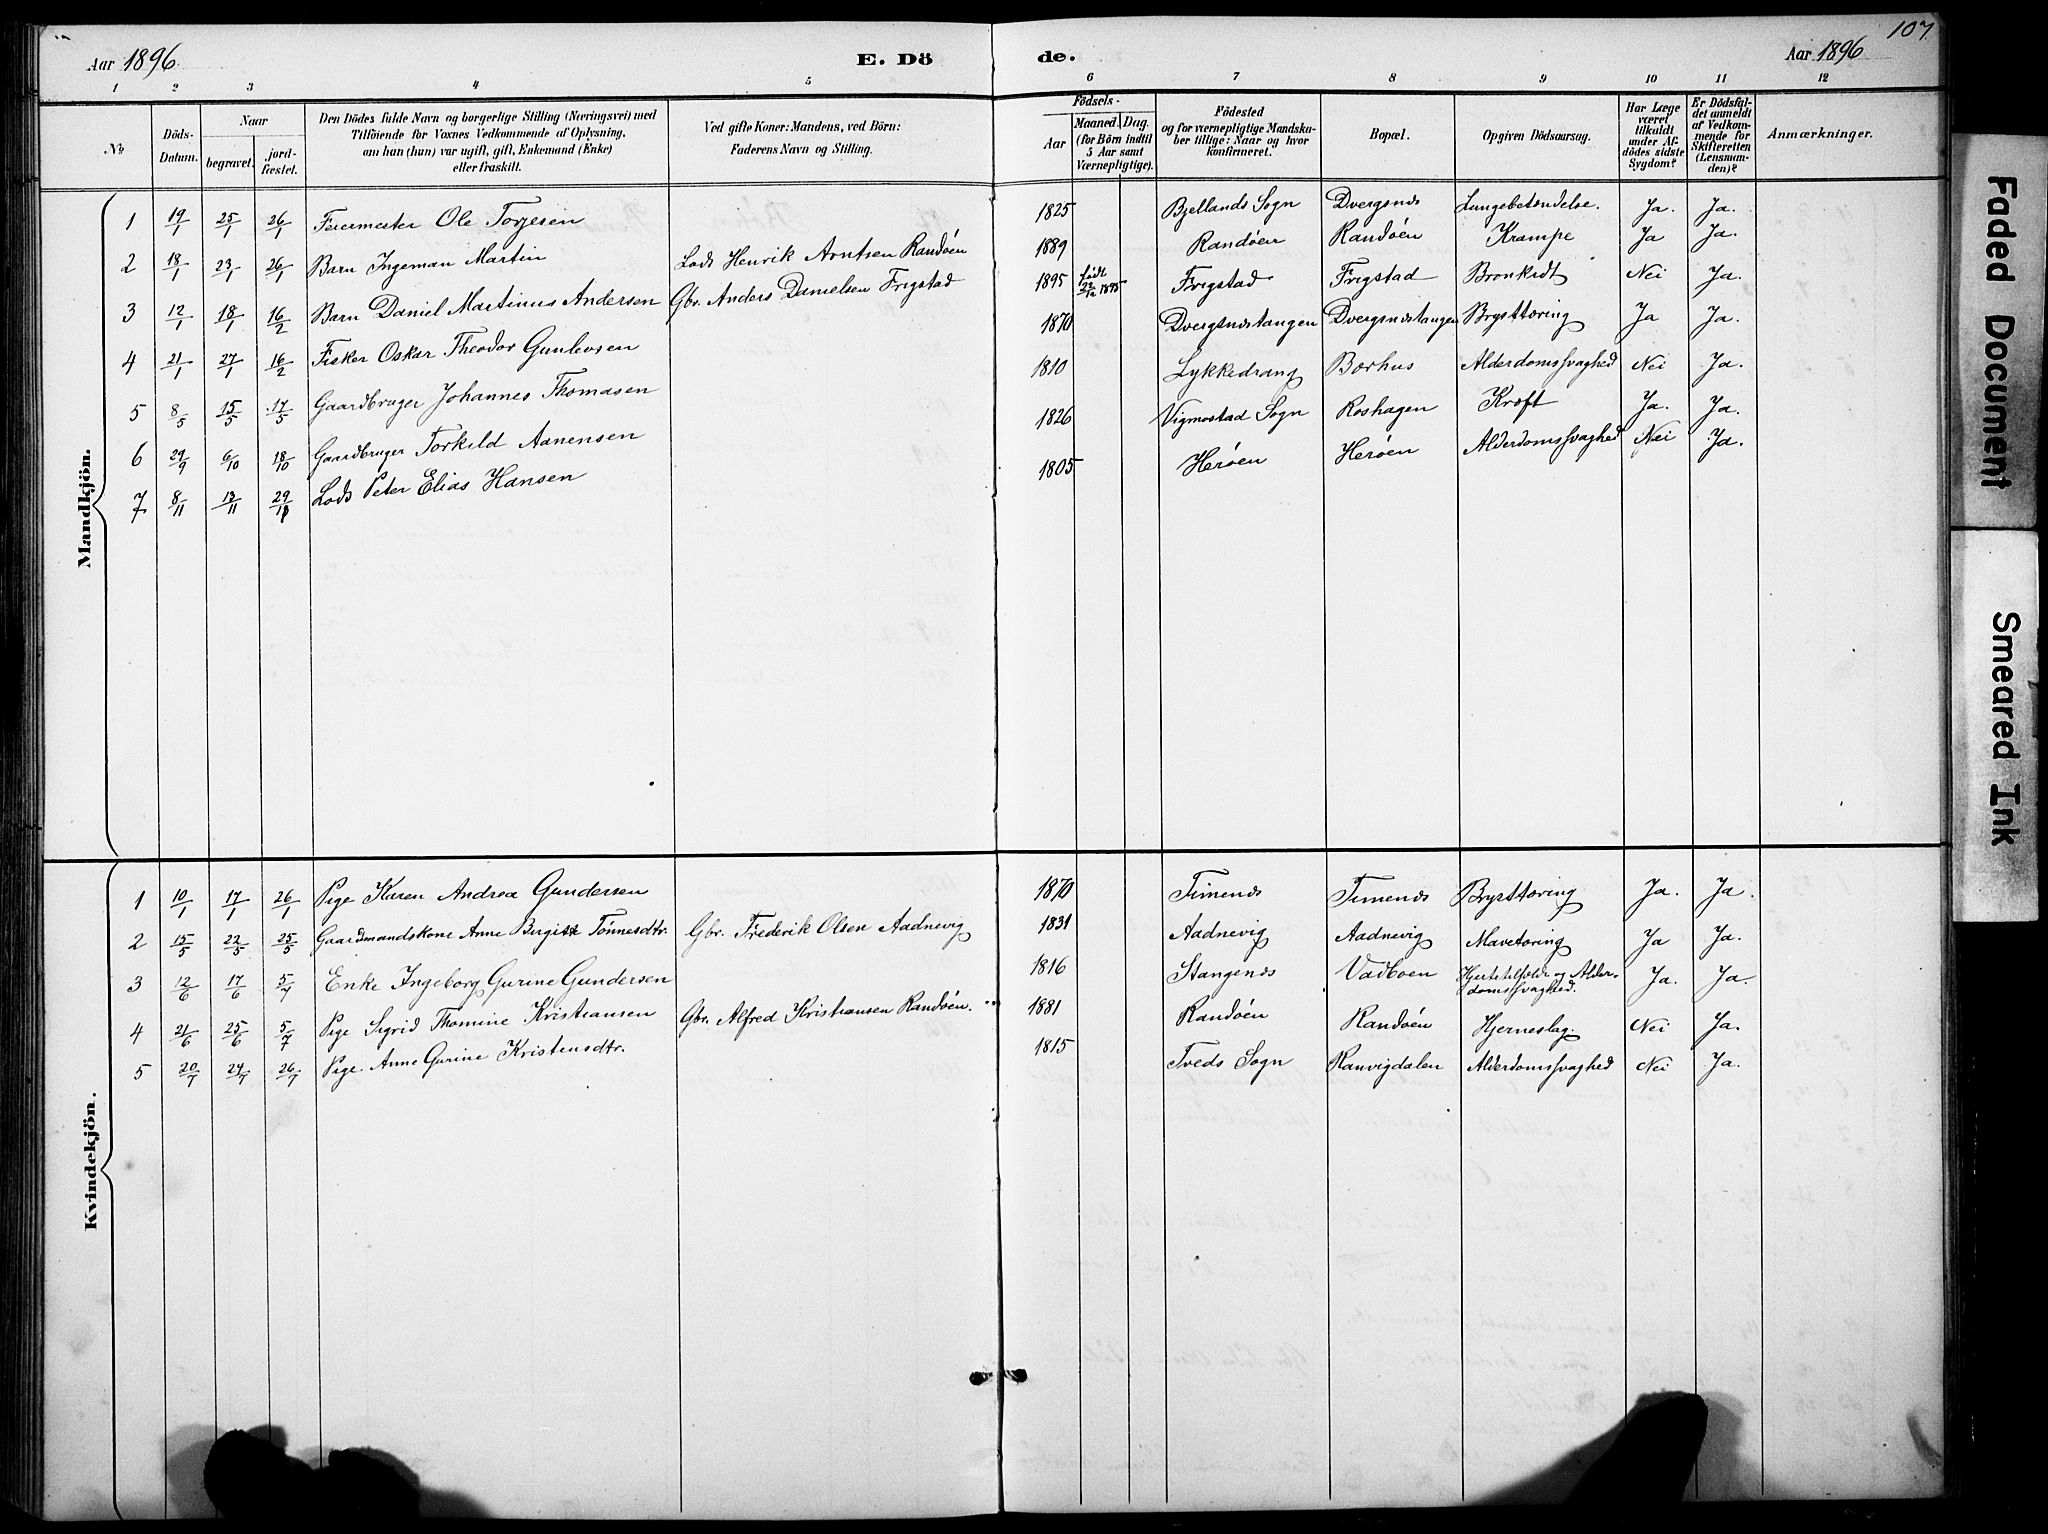 107
Aar 1896
E. Dö
de.
Aar 1896
1 2 3 4 5 6 7 8 9 10 11 12
No
Döds-Datum.
Naar
begravet.
jord-fæstet.
Den Dödes fulde Navn og borgerlige Stilling (Næringsvei) med
Tilföiende for Voxnes Vedkommende af Oplysning,
om han (hun) var ugift, gift, Enkemand (Enke)
eller fraskilt.
Ved gifte Koner: Mandens, ved Börn:
Faderens Navn og Stilling.
Födsels-
Aar
Maaned. Dag.
(for Börn indtil
5 Aar samt
Værnepligtige).
Födested
og for værnepligtige Mandska-
ber tillige: Naar og hvor
konfirmeret.
Bopæl.
Opgiven Dödsaarsag.
Har Læge
været
tilkaldt
under Af-
dödes sidste
Sygdom?
Er Dödsfal-
det anmeldt
af Vedkom-
mende for
Skifteretten
(Lensman-
den)?
Anmærkninger.
Mandkjön.
1 19/1 25/1 26/1 Feiermester Ole Torjesen 1825 Bjellands Sogn Dvergsnes Lungebetendelse. Ja. Ja.
2 18/1 23/1 26/1 Barn Ingeman Martin Lods Henrik Arntsen Randöen 1889 Randöen Randöen Krampe Ja Ja.
3 12/1 18/1 16/2 Barn Daniel Martinus Andersen Gbr. Anders Danielsen Frigstad 1895 födt 22/12 1895 Frigstad Frigstad Bronkidt Nei Ja.
4 21/1 27/1 16/2 Fisker Oskar Theodor 1870 Dvergsnestangen Dvergsnestangen Brysttæring Ja Ja.
5 8/5 15/5 17/5 Gaardbruger Johannes Thomasen 1810 Lykkedrang Borhus Alderdomssvaghed Nei Ja.
6 29/9 6/10 18/10 Gaardbruger Torkild Aanensen 1826 Vigmostad Sogn Roshagen Kræft Ja. Ja.
7 8/11 13/11 29/11 Lods Peter Elias Hansen 1805 Heröen Heröen Alderdomssvaghed Nei Ja.
Kvindekjön.
1 10/1 17/1 26/1 Pige Karen Andrea Gundersen 1870 Timenes Timenes Brysttæring Ja. Ja.
2 15/5 22/5 25/5 Gaardmandskone Anne Birgitte Tönnesdtr. Gbr. Frederik Olsen Aadnevig 1831 Aadnevig Aadnevig Mavetæring Ja Ja.
3 12/6 17/6 5/7 Enke Ingeborg Gurine Gundersen 1816 Stangenes Vadboen Hjertetilfælde og Alder-
domssvaghed. Ja. Ja.
4 21/6 25/6 5/7 Pige Sigrid Thomine Kristiansen Gbr. Alfred Kristiansen Randöen. 1881 Randöen Randöen Hjerneslag. Nei Ja.
5 20/7 24/7 26/7 Pige Anne Gurine Kristensdtr. 1815 Tveds Sogn Ranvigdalen Alderdomssvaghed Nei Ja.
Faded Document
Smeared Ink